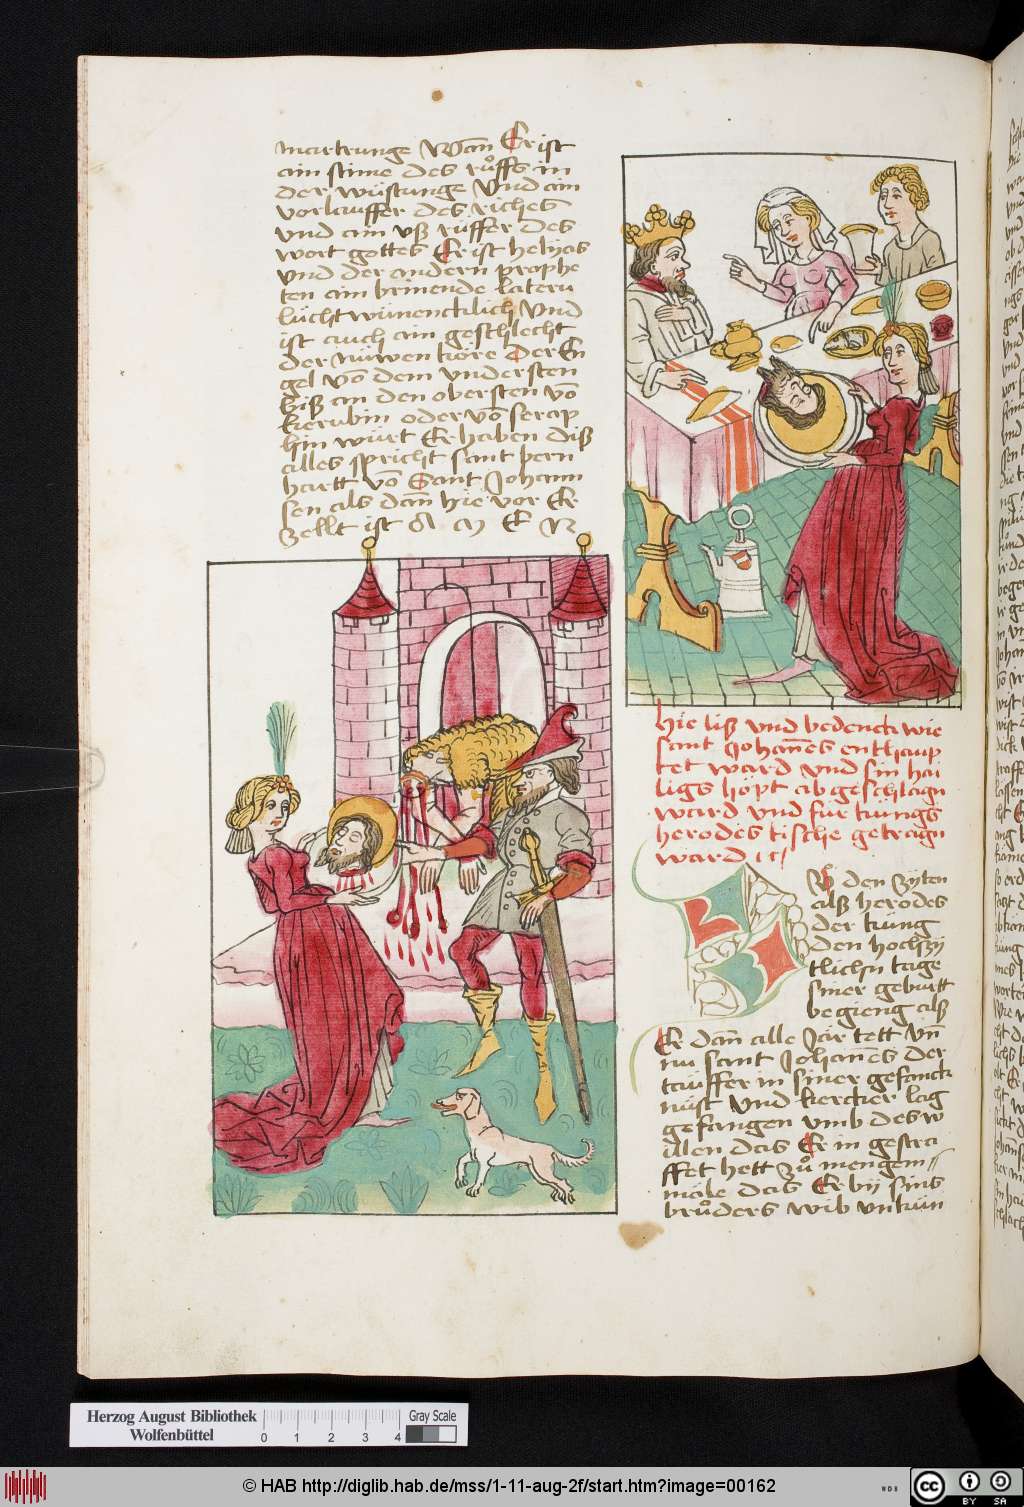 martrunge Wan Er ist
ain stime des růffs in
der wüstunge Vnd ain
vorlauffer des riches
vnd ain vß rüffer des
wort gottes Er ist helyas
vnd der andern prophe
ten ain brinende latern
lücht wünencklich Vnd
ist auch ain geschlecht
der nüwen köre Der En
gel võ dem vndersten
biß an den obersten võ
kerubin oder võ serap
hin würt Er haben diß
alles spricht sant pern
hartt võ Sant Johann
sen als dañ hie vor Er
zellt ist A M E N
hie liß vnd bedenck wie
sant Johañes enthaup
tet ward vnd sin hai
ligs höpt ab geschlagn
ward vnd für küngs
herodes tische getragn
ward
den zyten
alß herodes
der küng
den hochzij
tlichn tage
siner geburtt
begieng alß
Er dañ alle Jar tett vñ
nu sant Johañes der
täuffer in siner gefanck
nüst vnd kercker lag
gefangen vmb des w
illen das Er in gestra
ffet hett zů mengem
male das Er bij sins
brůders wib vnkün
Herzog August Bibliothek
Wolfenbüttel
0 1 2 3 4
Gray Scale
© HAB http://diglib.hab.de/mss/1-11-aug-2f/start.htm?image=00162
WDB
cc BY SA